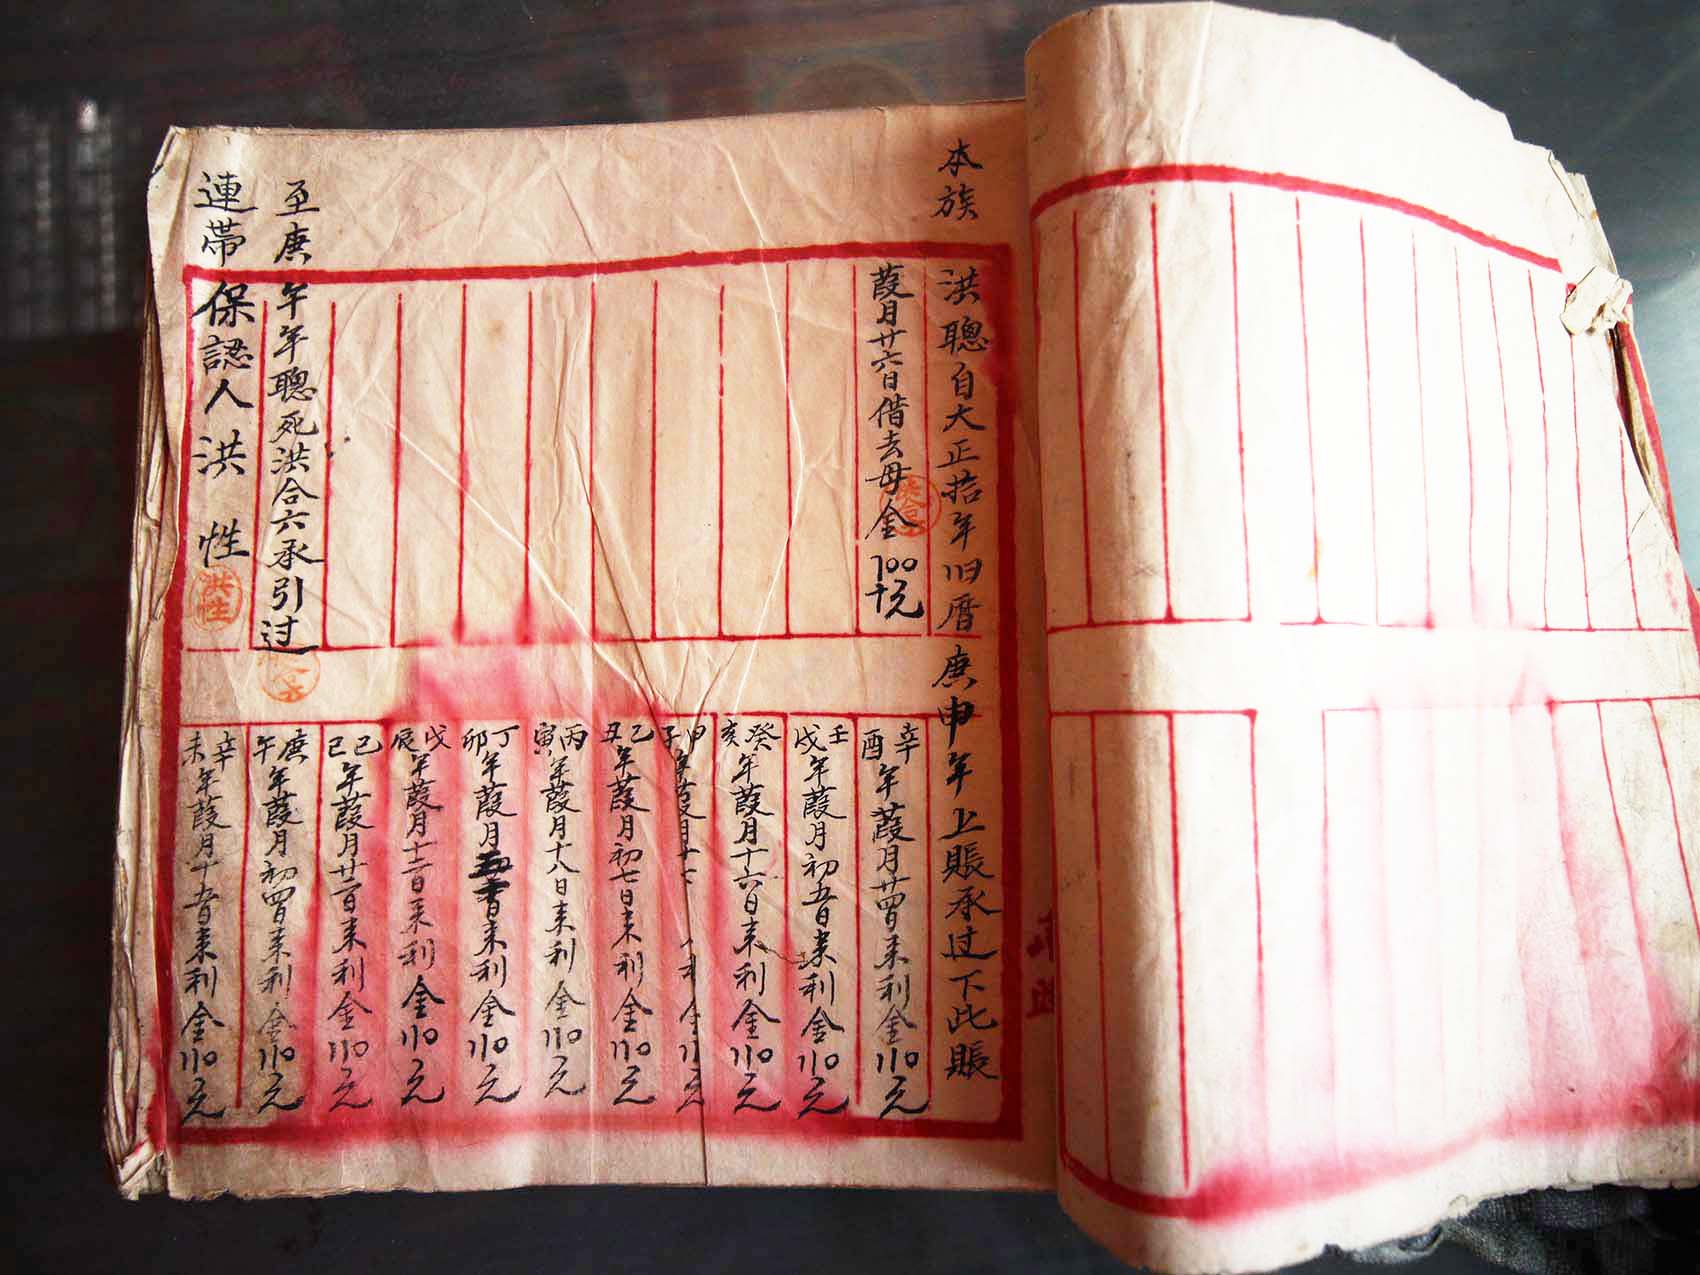 本族 洪聰自大正拾年旧暦庚申年上賬承过下此賬
葭月廿六日借去母金100元
辛酉年葭月廿四日来利金110元
壬戌年葭月初五日来利金110元
癸亥年葭月十六日来利金110元
甲子年葭月十
乙丑年葭月初七日来利金110元
丙寅年葭月十八日来利金110元
丁卯年葭月日来利金110元
戊辰年葭月十二日来利金110元
己巳年葭月廿二日来利金110元
庚午年葭月初四日来利金110元
辛未年葭月十五日来利金110元
至庚午年聰死洪合六承引过
連帯保認人洪性
洪性